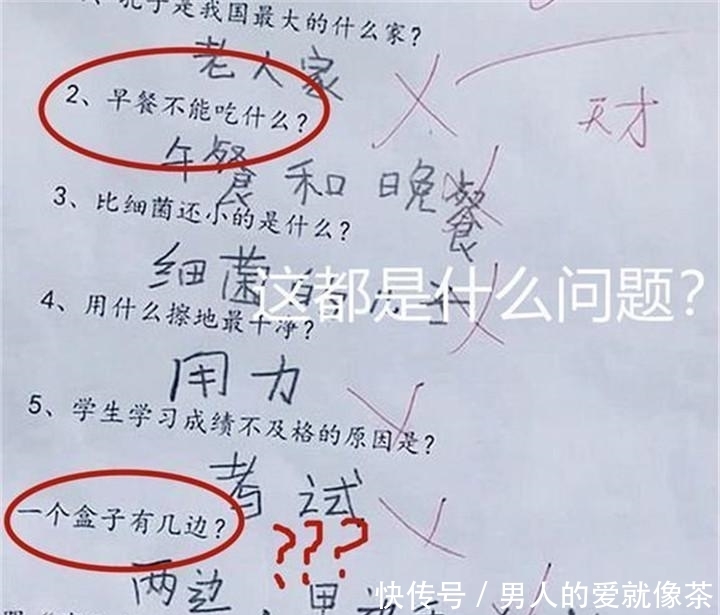 孔子是我国最大的什么家?
老人家
天才
2、早餐不能吃什么?
午餐和晚餐
3、比细菌还小的是什么?
细菌的儿子
这都是什么问题?
4、用什么擦地最干净?
用力
5、学生学习成绩不及格的原因是?
考试
一个盒子有几边?
???
两边
快传号/男人的爱就像茶